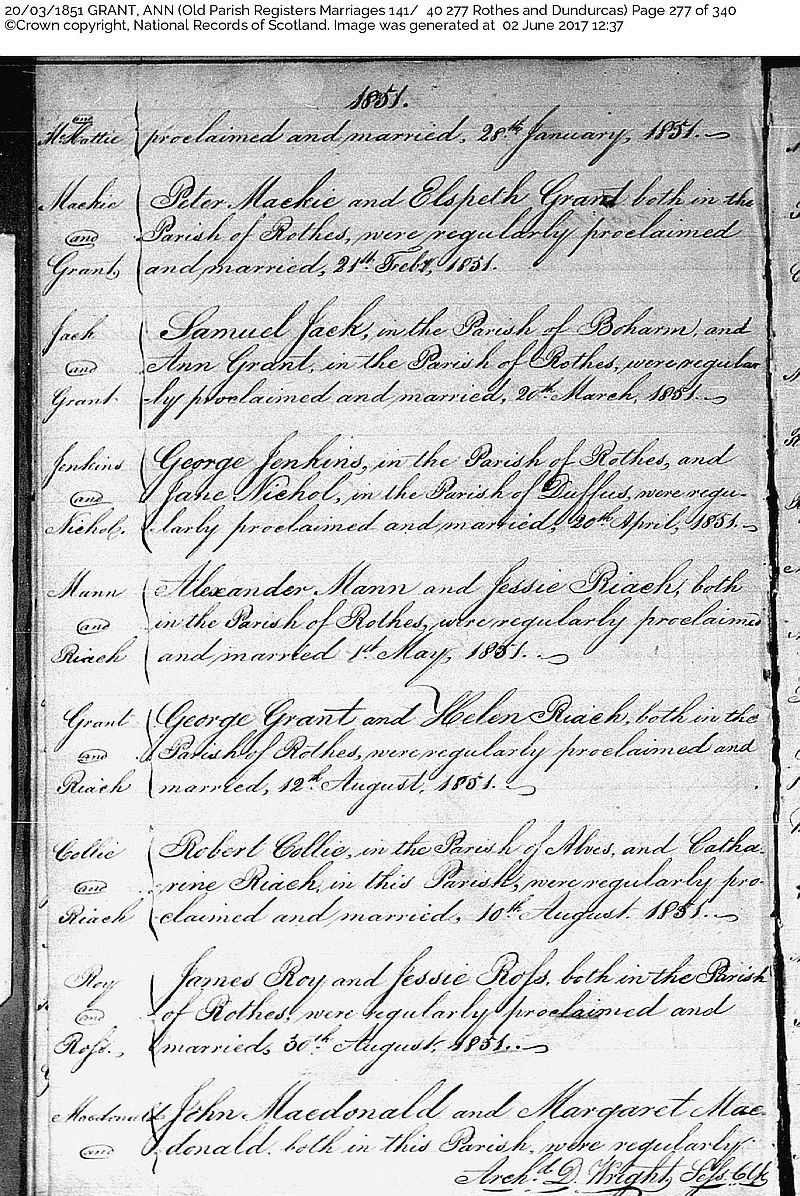 20/03/1851 GRANT, ANN (Old Parish Registers Marriages 141/ 40 277 Rothes and Dundurcas) Page 277 of 340
©Crown copyright, National Records of Scotland. Image was generated at 02 June 2017 12:37
1851.
and
McHattie proclaimed and married, 28th January, 1851.
Mackie Peter Mackie and Elspeth Grant both in the
and Parish of Rothes, were regularly proclaimed
Grant, and married, 21st Feby, 1851.
Jack Samuel Jack, in the Parish of Boharm, and
and Ann Grant, in the Parish of Rothes, were regular
Grant -ly proclaimed and married, 20th March, 1851.
Jenkins George Jenkins, in the Parish of Rothes, and
and Jane Nichol, in the Parish of Duffus, were regu-
Nichol. larly proclaimed and married, 20th April, 1851.
Mann Alexander Mann and Jessie Riach, both
and in the Parish of Rothes, were regularly proclaimed
Riach and married 1st May, 1851.
Grant George Grant and Helen Riach, both in the
and Parish of Rothes, were regularly proclaimed and
Riach married, 12th August, 1851.
Collie Robert Collie, in the Parish of Alves, and Catha-
and rine Riach, in this Parish, were regularly pro-
Riach claimed and married, 10th August. 1851.
Roy James Roy and Jessie Ross, both in the Parish
and of Rothes, were regularly proclaimed and
Ross., married, 30th August, 1851.
Macdonald John Macdonald and Margaret Mac-
and donald, both in this Parish, were regularly
Archd. D. Wright, Sess. Clk.